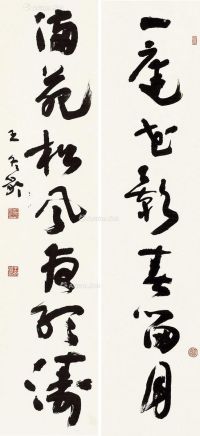 一庭花影春留月
满苑松风夜听涛
王冬龄